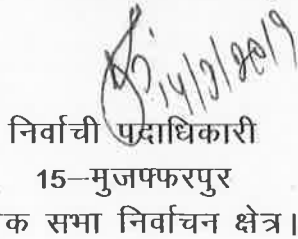 14/3/2019
निर्वाची पदाधिकारी
15–मुजफ्फरपुर
क सभा निर्वाचन क्षेत्र।